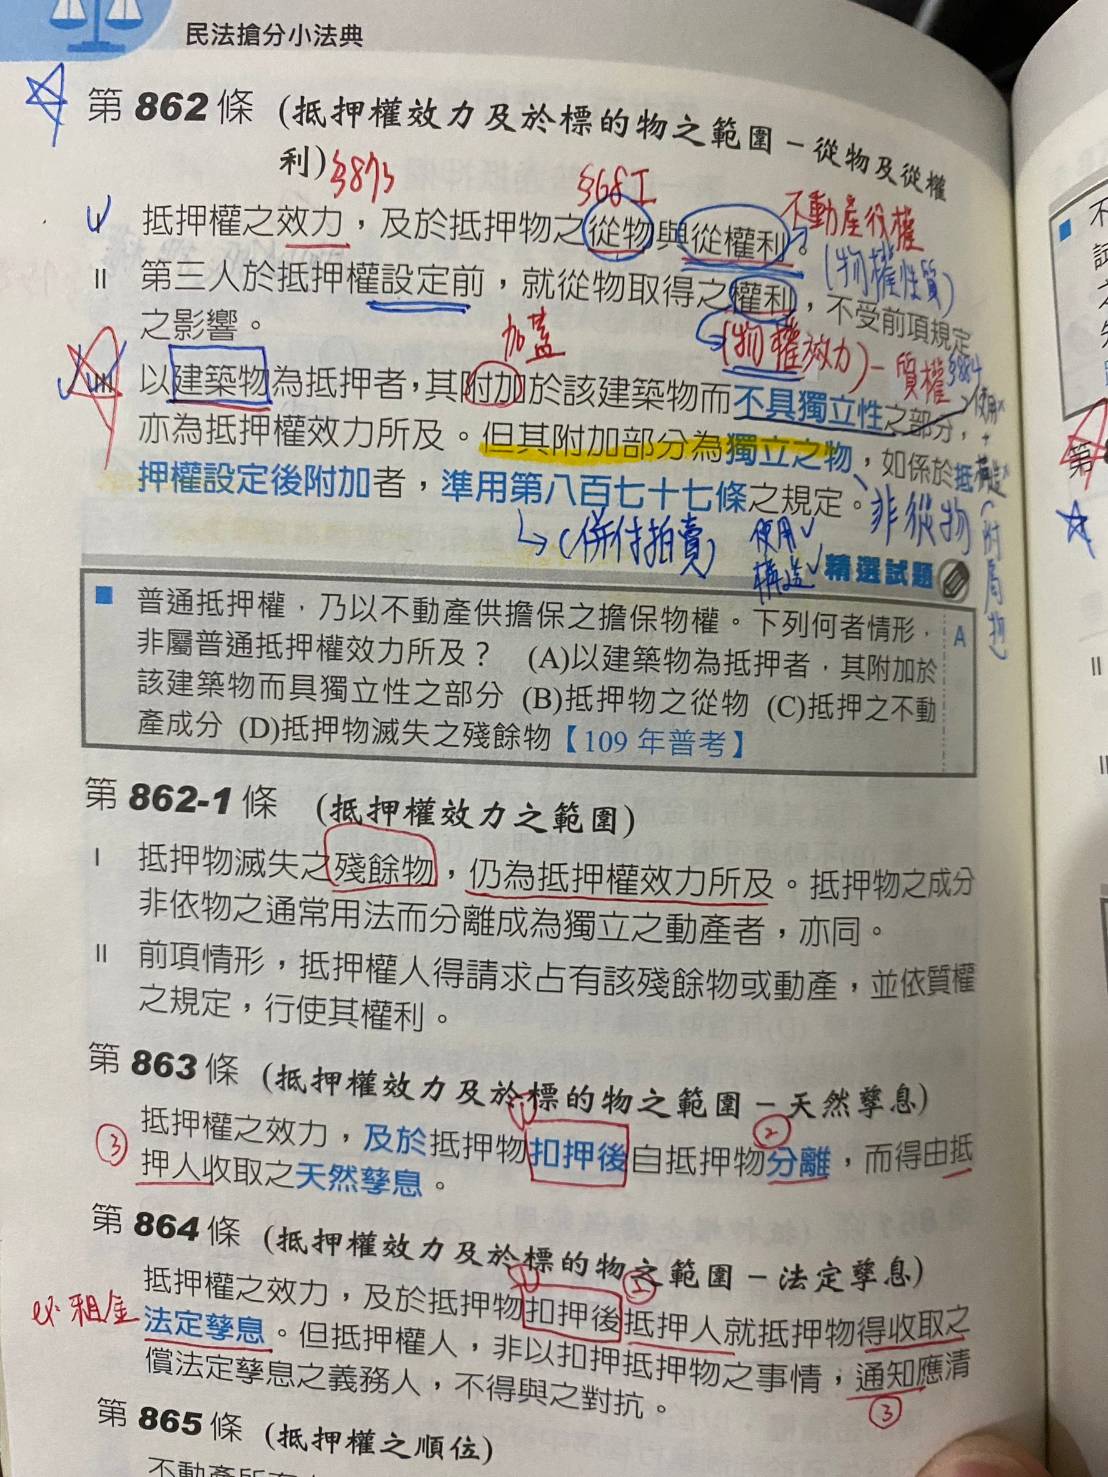 民法搶分小法典
第862條 (抵押權效力及於標的物之範圍－從物及從權
利) §873
§68Ⅰ
不動產役權
抵押權之效力，及於抵押物之從物與從權利。
(物權性質)
II 第三人於抵押權設定前，就從物取得之權利，不受前項規定
之影響。
加蓋
(物權效力)－質權§884
III 以建築物為抵押者，其附加於該建築物而不具獨立性之部分，
使用×
+
構造×
亦為抵押權效力所及。但其附加部分為獨立之物，如係於抵
押權設定後附加者，準用第八百七十七條之規定。
非從物
(附屬物
(併付拍賣)
使用✓
構造✓
精選試題
普通抵押權，乃以不動產供擔保之擔保物權。下列何者情形，
A
非屬普通抵押權效力所及？ (A)以建築物為抵押者，其附加於
該建築物而具獨立性之部分 (B)抵押物之從物 (C)抵押之不動
產成分 (D)抵押物滅失之殘餘物【109年普考】
第862-1條 (抵押權效力之範圍)
I 抵押物滅失之殘餘物，仍為抵押權效力所及。抵押物之成分
非依物之通常用法而分離成為獨立之動產者，亦同。
II 前項情形，抵押權人得請求占有該殘餘物或動產，並依質權
之規定，行使其權利。
第863條 (抵押權效力及於標的物之範圍－天然孳息)
①
②
抵押權之效力，及於抵押物扣押後自抵押物分離，而得由抵
③
押人收取之天然孳息。
第864條 (抵押權效力及於標的物之範圍－法定孳息)
①
②
抵押權之效力，及於抵押物扣押後抵押人就抵押物得收取之
租金
法定孳息。但抵押權人，非以扣押抵押物之事情，通知應清
③
償法定孳息之義務人，不得與之對抗。
第865條 (抵押權之順位)
不動產所有